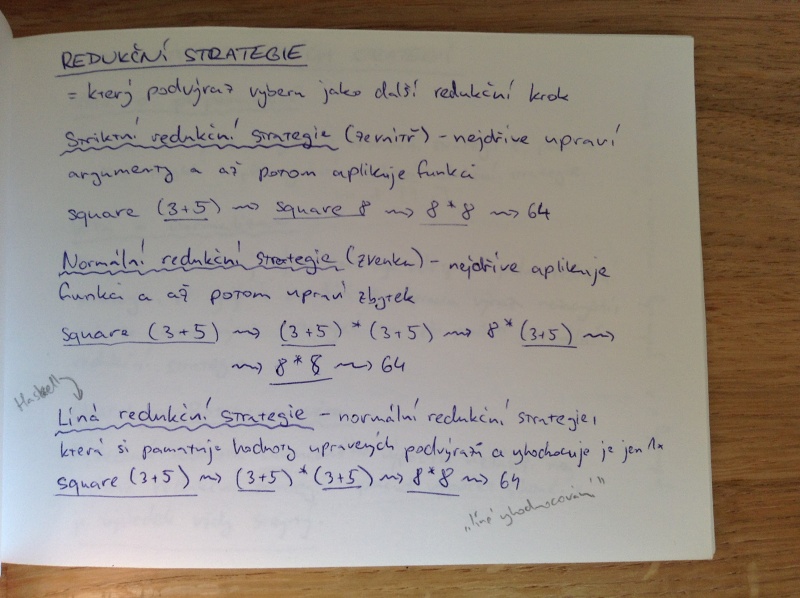 REDUKČNÍ STRATEGIE
= který podvýraz vyberu jako další redukční krok
Striktní redukční strategie (zevnitř) - nejdříve upraví
argumenty a až potom aplikuje funkci
square (3+5) ⇝ square 8 ⇝ 8 * 8 ⇝ 64
Normální redukční strategie (zvenku) - nejdříve aplikuje
funkci a až potom upraví zbytek
square (3+5) ⇝ (3+5) * (3+5) ⇝ 8 * (3+5) ⇝
⇝ 8 * 8 ⇝ 64
Haskell
Líná redukční strategie - normální redukční strategie,
která si pamatuje hodnoty upravených podvýrazů a vyhodnocuje je jen 1x
square (3+5) ⇝ (3+5) * (3+5) ⇝ 8 * 8 ⇝ 64
„líné vyhodnocování"